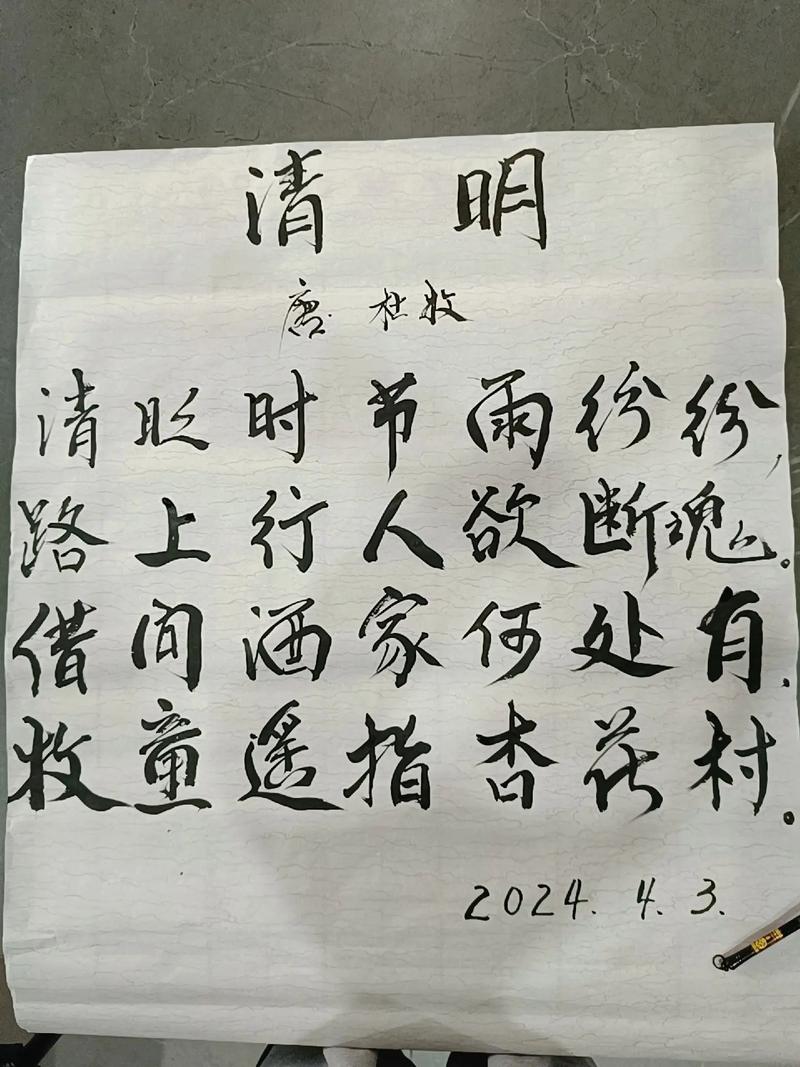 清 明
唐 杜牧
清明时节雨纷纷,
路上行人欲断魂。
借问酒家何处有,
牧童遥指杏花村。
2024. 4. 3.